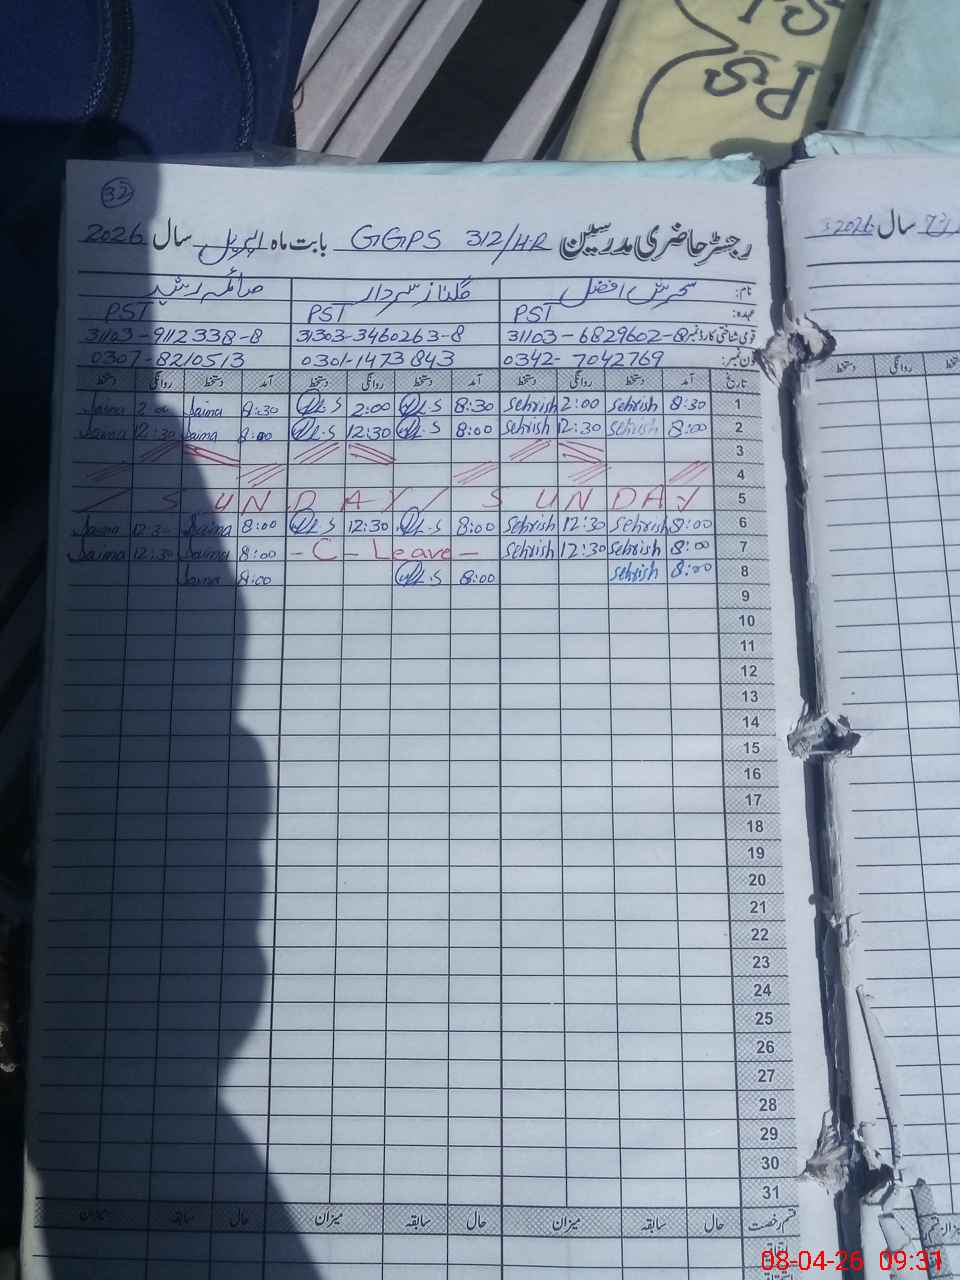 32
رجسٹر حاضری مدرسین GGPS 312/HR بابت ماہ اپریل سال 2026
نام: سحرش افضل گلناز سردار صائمہ رشید
عہدہ: PST PST PST
قومی شناختی کارڈ نمبر 31103-6829602-8 31303-3460263-8 31103-9112338-8
فون نمبر: 0342-7042769 0301-1473843 0307-8210513
تاریخ آمد دستخط روانگی دستخط آمد دستخط روانگی دستخط آمد دستخط روانگی دستخط
1 8:30 Sehrish 2:00 Sehrish 8:30 2:00 8:30 Saima 2:00 Saima
2 8:00 Sehrish 12:30 Sehrish 8:00 12:30 8:00 Saima 12:30 Saima
3
4
5 SUNDAY SUNDAY
6 8:00 Sehrish 12:30 Sehrish 8:00 12:30 8:00 Saima 12:30 Saima
7 8:00 Sehrish 12:30 Sehrish - C - Leave - 8:00 Saima 12:30 Saima
8 8:00 Sehrish 8:00 8:00 Saima
9
10
11
12
13
14
15
16
17
18
19
20
21
22
23
24
25
26
27
28
29
30
31
قسم رخصت حال سابقہ میزان حال سابقہ میزان حال سابقہ میزان
سال 2026
روانگی دستخط
PS
08-04-26 09:31